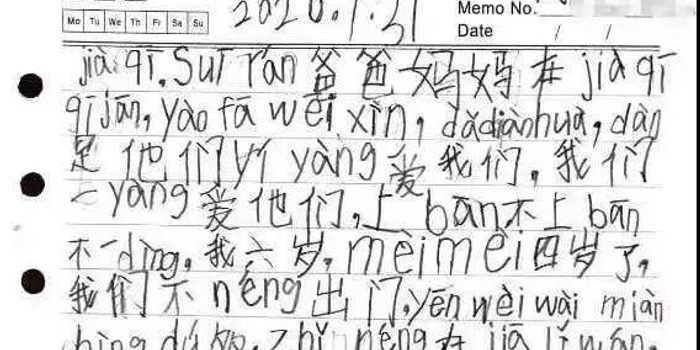 Mo Tu We Th Fr Sa Su
2020.1.31
Memo No.
Date / /
jià qī. Suī rán 爸爸妈妈在 jià qī
qī jiān, yào fā wēi xìn, dǎdiànhuà, dàn
是他们 yí yàng 爱我们, 我们
一 yàng 爱他们, 上 bān 不上 bān
不一 dìng. 我六岁, mèimei 四岁了,
我们不 néng 出门, yēn wèi wài miàn
bìng dú zhǐ néng 在 jiā lǐ wán.